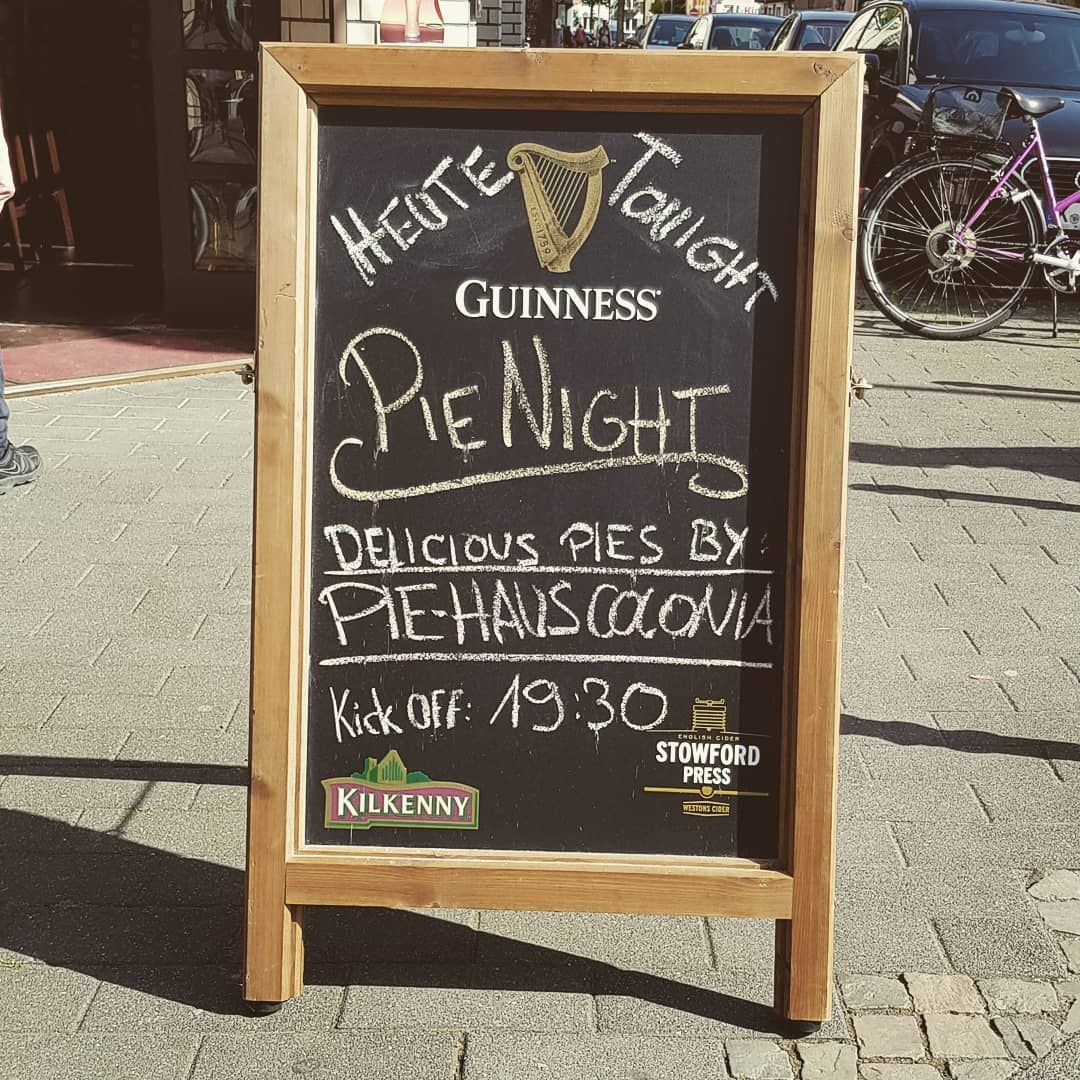 HEUTE TONIGHT
EST. 1759
GUINNESS
PIE NIGHT
DELICIOUS PIES BY:
PIE-HAUS COLONIA
Kick OFF: 19:30
ENGLISH CIDER
STOWFORD
PRESS
WESTONS CIDER
KILKENNY